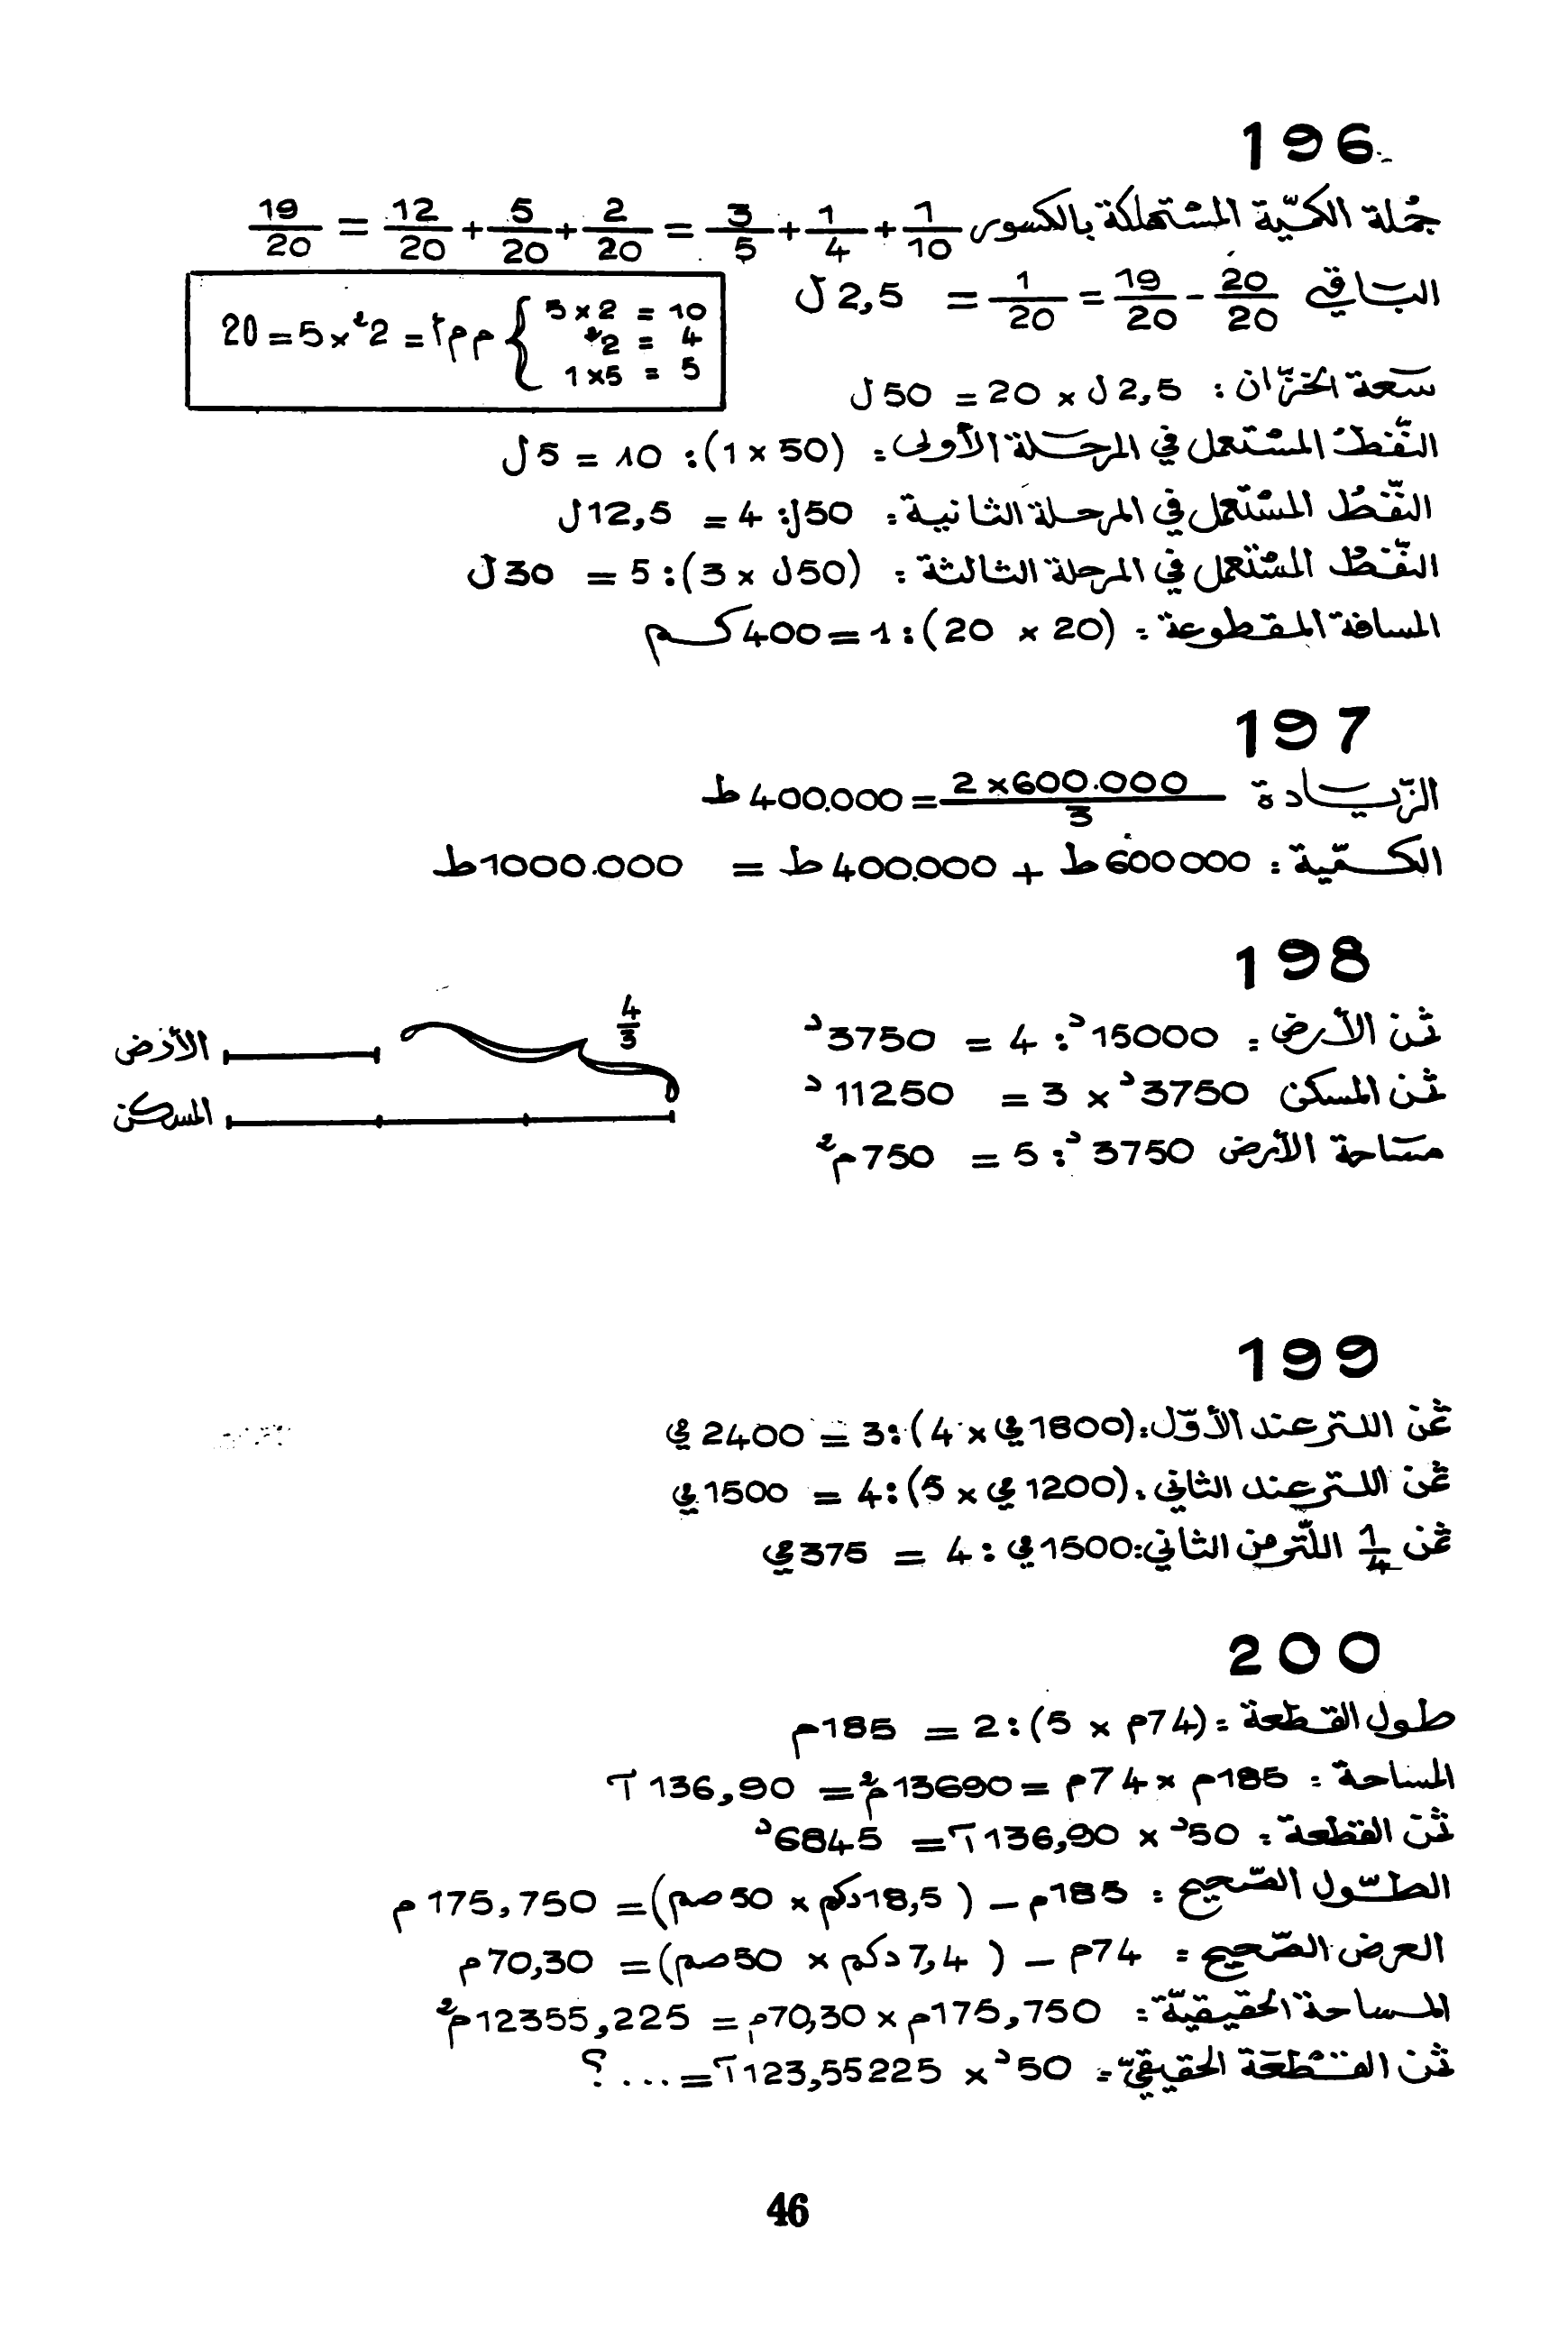 196
جملة الكمّيّة المستهلكة بالكسور 1/10 + 1/4 + 3/5 = 2/20 + 5/20 + 12/20 = 19/20
الباقي 20/20 - 19/20 = 1/20 = 2,5 ل
10 = 2 × 5
4 = 2²
5 = 5 × 1
م م أ = 2² × 5 = 20
سعة الخزّان : 2,5 ل × 20 = 50 ل
النّفط المستعمل في المرحلة الأولى : (50 × 1) : 10 = 5 ل
النّفط المستعمل في المرحلة الثانية : 50ل : 4 = 12,5 ل
النّفط المستعمل في المرحلة الثالثة : (50ل × 3) : 5 = 30 ل
المسافة المقطوعة : (20 × 20) : 1 = 400 كم
197
الزّيادة 600.000 × 2 / 3 = 400.000 ط
الكمّية : 600000 ط + 400.000 ط = 1000.000 ط
198
ثمن الأرض : 15000 د : 4 = 3750 د
ثمن المسكن 3750 د × 3 = 11250 د
مساحة الأرض 3750 د : 5 = 750 م²
4/3
الأرض
المسكن
199
ثمن اللتر عند الأوّل : (1800 ي × 4) : 3 = 2400 ي
ثمن اللتر عند الثاني : (1200 ي × 5) : 4 = 1500 ي
ثمن 1/4 اللّتر من الثاني : 1500 ي : 4 = 375 ي
200
طول القطعة : (74م × 5) : 2 = 185 م
المساحة : 185م × 74م = 13690 م² = 136,90 آ
ثمن القطعة : 50 د × 136,90 آ = 6845 د
الطّول الصّحيح : 185م – (18,5 دكم × 50 صم) = 175,750 م
العرض الصّحيح : 74م – (7,4 دكم × 50 صم) = 70,30 م
المساحة الحقيقيّة : 175,750م × 70,30م = 12355,225 م²
ثمن القطعة الحقيقيّ : 50 د × 123,55225 آ = ... ؟
46